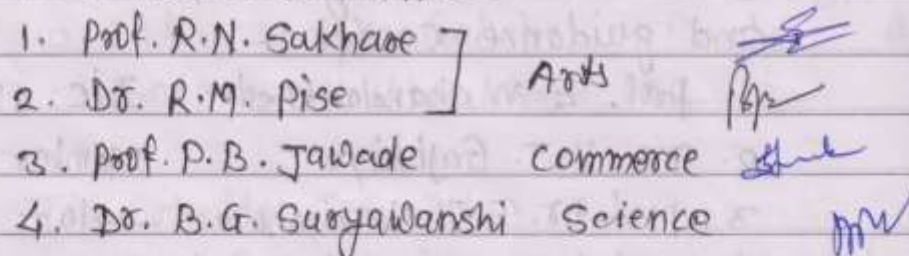 1. Prof. R.N. Sakhare ] Arts
2. Dr. R.M. Pise
3. Prof. P.B. Jawade Commerce
4. Dr. B.G. Suryawanshi Science